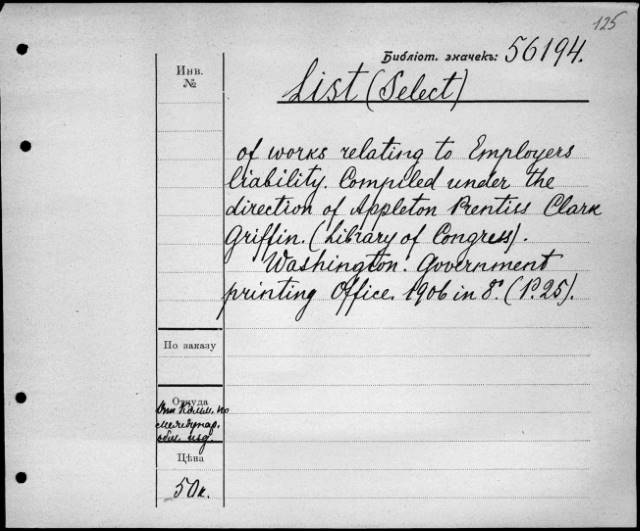 125
Библіот. значекъ: 56194.
Инв.
№
List (Select)
of works relating to Employers
liability. Compiled under the
direction of Appleton Prentiss Clark
Griffin. (Library of Congress).
Washington. Government
printing Office. 1906 in 8°. (P. 25).
По заказу
Откуда
Отъ Комм. по
междунар.
обм. изд.
Цѣна
50 к.